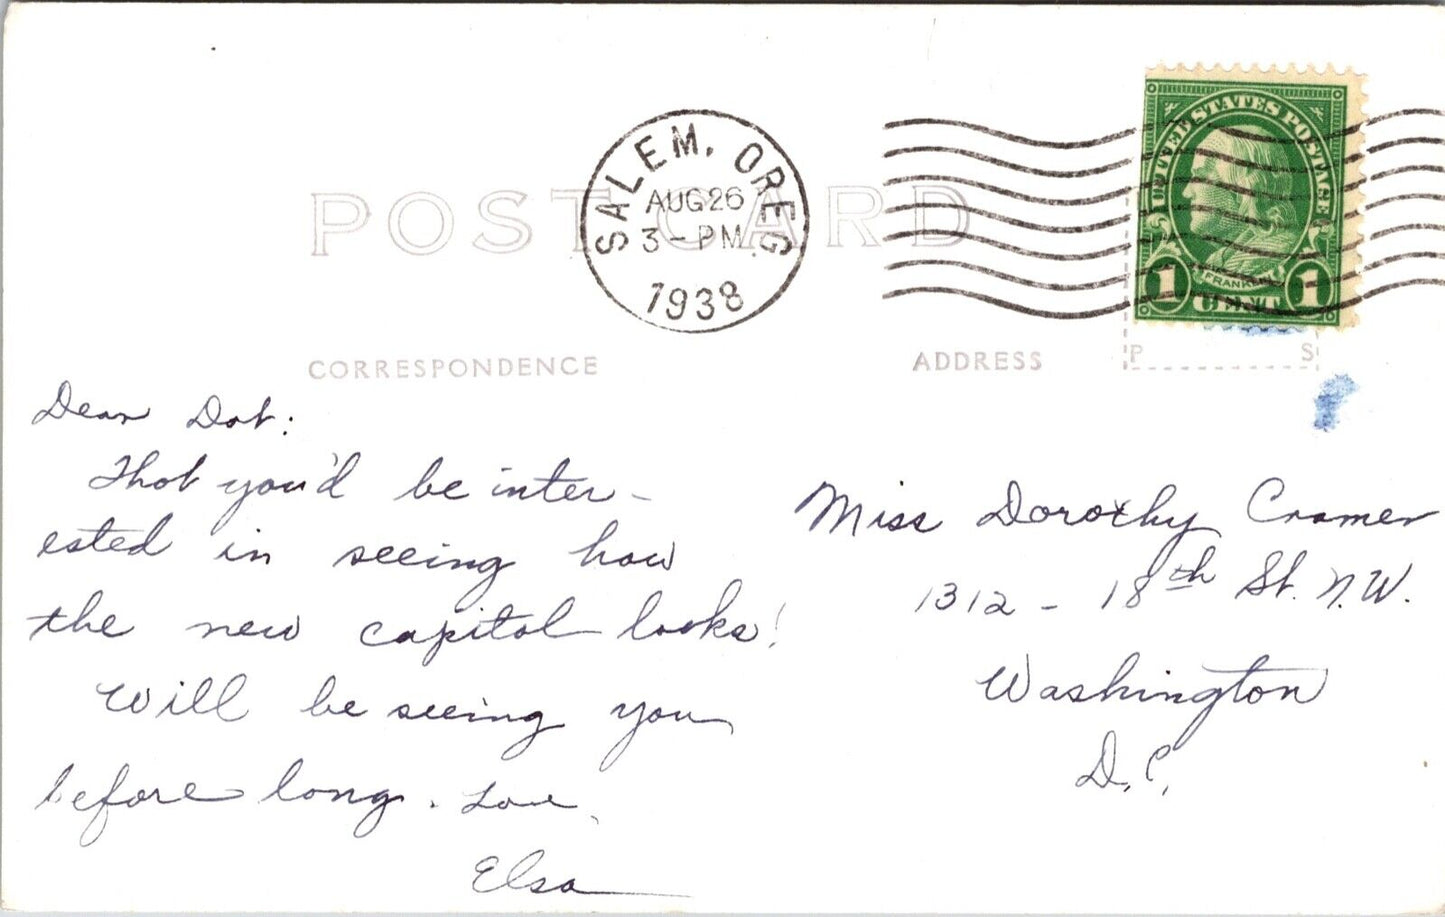 SALEM, OREG
AUG 26
3 - PM
1938
UNITED STATES POSTAGE
FRANKLIN
1 CENT 1
POST CARD
CORRESPONDENCE
ADDRESS
P S
Dear Dot:
Thot you'd be inter-
ested in seeing how
the new capitol looks!
Will be seeing you
before long. Love,
Elsa
Miss Dorothy Cramer
1312 - 18th St. N.W.
Washington
D.C.